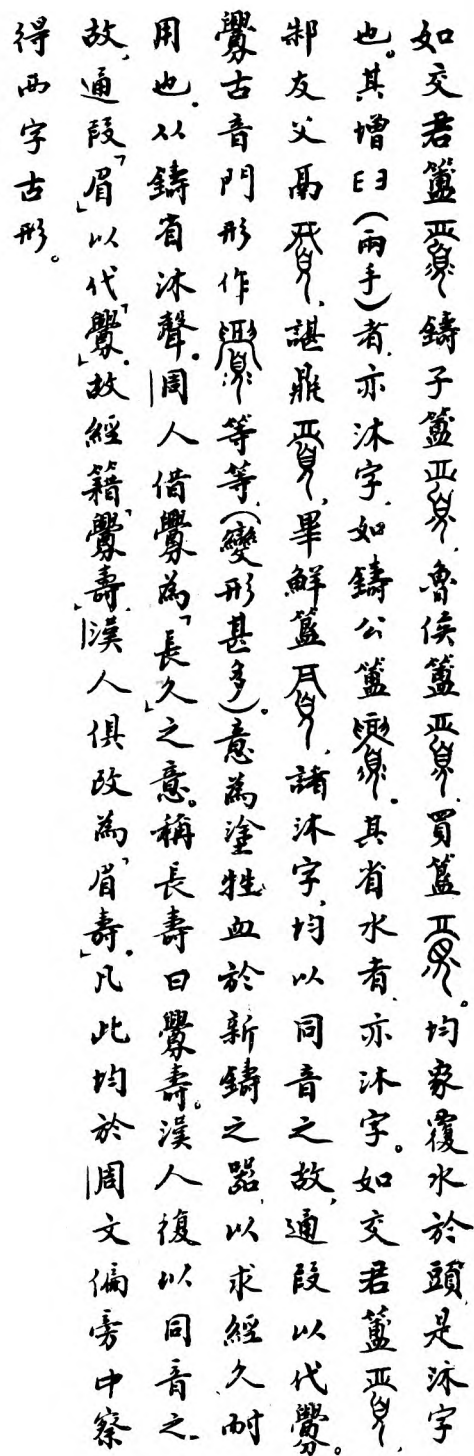 如交君簠鑄子簠魯侯簠、買簠。均象覆水於頭、是沐字
也。其增𦥑(兩手)者、亦沐字、如鑄公簠。其省水者、亦沐字。如交君簠、
邾友父鬲、諶鼎、畢鮮簋、諸沐字、均以同音之故、通叚以代釁。
釁古音門形作等等、(變形甚多)。意為塗牲血於新鑄之器、以求經久耐
用也。从鑄省沐聲。周人借釁為「長久」之意。稱長壽曰釁壽。漢人復以同音之
故、通叚「眉」以代「釁」。故經籍「釁壽」、漢人俱改為「眉壽」。凡此均於周文偏旁中察
得兩字古形。